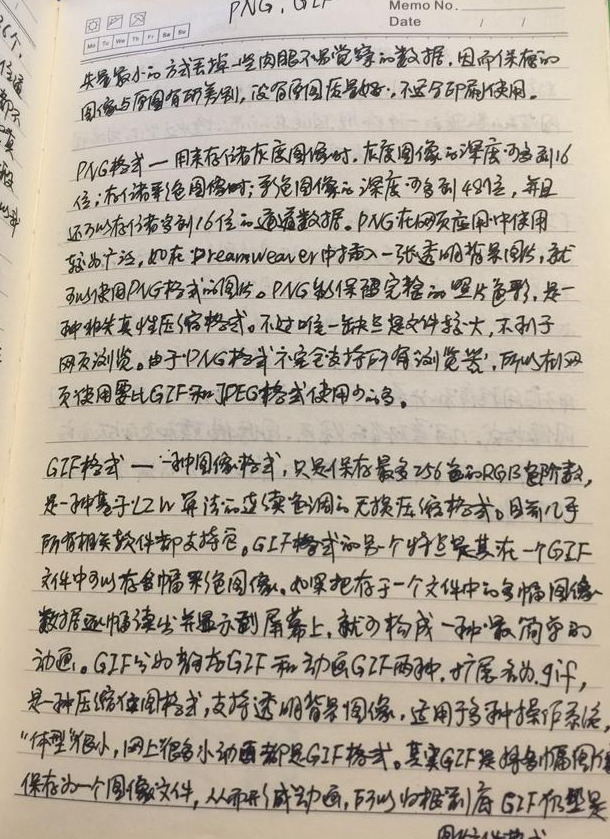 PNG, GIF
Memo No.
Date / /
Mo Tu We Th Fr Sa Su
失量最小的方式丢掉一些肉眼不易觉察的数据，因而保存的
图像与原图有所差别，没有原图质量好，不适合印刷使用。
PNG格式 — 用来存储灰度图像时，灰度图像的深度可多到16
位；存储彩色图像时，彩色图像的深度可多到48位，并且
还可以存储多到16位的通道数据。PNG在网页应用中使用
较为广泛，如在Dreamweaver中插入一张透明背景图片，就
可以使用PNG格式的图片。PNG能保留完整的照片色彩，是一
种非失真性压缩格式。不过唯一缺点是文件较大，不利于
网页浏览。由于PNG格式不完全支持所有浏览器，所以在网
页使用要比GIF和JPEG格式使用少的多。
GIF格式 — 一种图像格式，只是保存最多256色的RGB色阶数，
是一种基于LZW算法的连续色调的无损压缩格式。目前几乎
所有相关软件都支持它。GIF格式的另个特点是其在一个GIF
文件中可以存多幅彩色图像。如果把存于一个文件中的多幅图像
数据逐幅读出并显示到屏幕上，就可构成一种最简单的
动画。GIF分为静态GIF和动画GIF两种，扩展名为.gif，
是一种压缩位图格式，支持透明背景图像，适用于多种操作系统，
“体型”很小，网上很多小动画都是GIF格式。其实GIF是将多幅图像
保存为一个图像文件，从而形成动画，所以归根到底GIF仍然是
图像文件格式